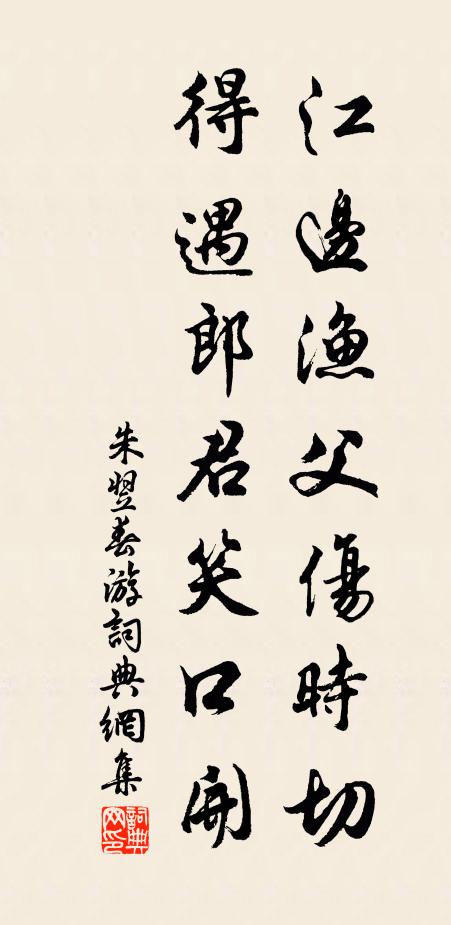 江邊漁父傷時切
得遇郎君笑口開
朱翌春游詞典網集
詞典网印